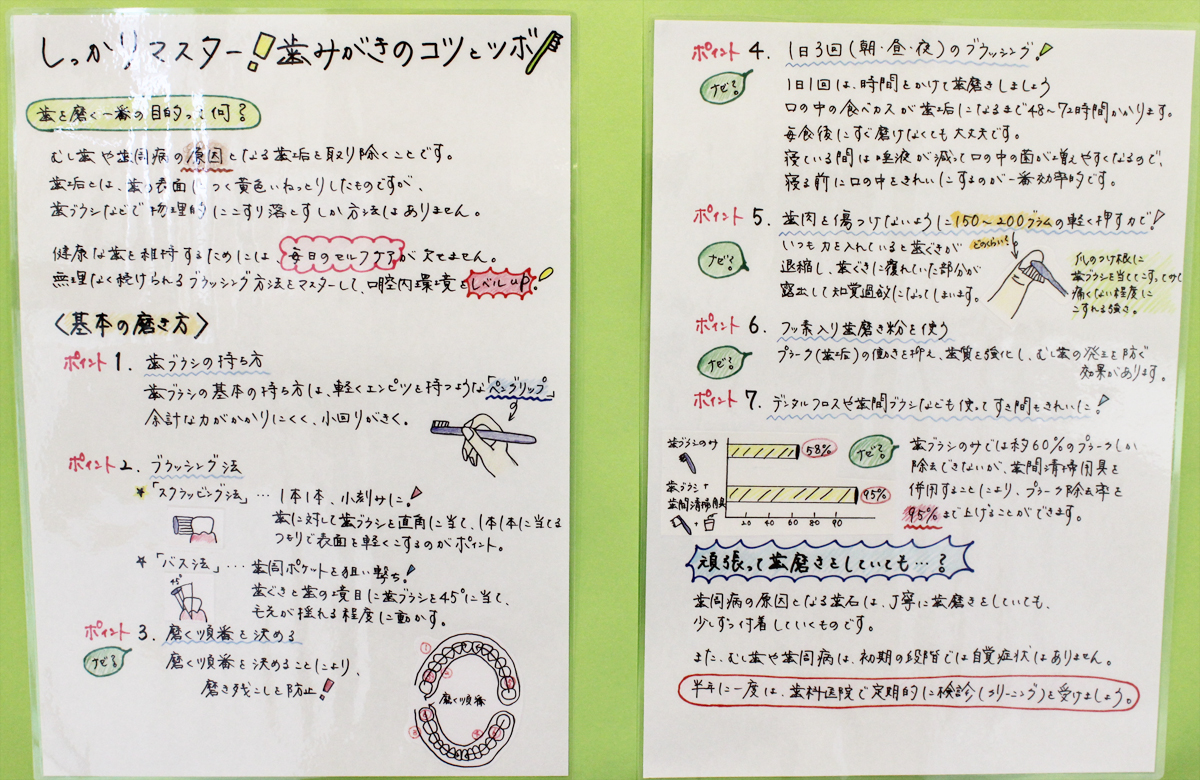 しっかりマスター!歯みがきのコツとツボ
歯を磨く一番の目的って何?
むし歯や歯周病の原因となる歯垢を取り除くことです。
歯垢とは、歯の表面につく黄色いねっとりしたものですが、
歯ブラシなどで物理的にこすり落とすしか方法はありません。
健康な歯を維持するためには、毎日のセルフケアが欠せません。
無理なく続けられるブラッシング方法をマスターして、口腔内環境をレベルup!
〈基本の磨き方〉
ポイント1. 歯ブラシの持ち方
歯ブラシの基本の持ち方は、軽くエンピツを持つような「ペングリップ」
余計な力がかかりにくく、小回りがきく。
ポイント2. ブラッシング法
★「スクラッピング法」… 1本1本、小刻みに!
歯に対して歯ブラシを直角に当て、1本1本に当てる
つもりで表面を軽くこするのがポイント。
★「バス法」… 歯周ポケットを狙い撃ち!
45°
歯ぐきと歯の境目に歯ブラシを45°に当て、
毛先が揺れる程度に動かす。
ポイント3. 磨く順番を決める
ナビ?
磨く順番を決めることにより、
磨き残こしを防止!
磨く順番
ポイント4. 1日3回(朝・昼・夜)のブラッシング!
ナビ?
1日1回は、時間をかけて歯磨きしましょう
口の中の食べカスが歯垢になるまで48〜72時間かかります。
毎食後にすぐ磨けなくても大丈夫です。
寝ている間は唾液が減って口の中の菌が増えやすくなるので、
寝る前に口の中をきれいにするのが一番効率的です。
ポイント5. 歯肉を傷つけないように150〜200グラムの軽く押す力で!
ナビ?
いつも力を入れていると歯ぐきが
退縮し、歯ぐきに覆れていた部分が
露出して知覚過敏になってしまいます。
どのくらい?
爪のつけ根に
歯ブラシを当ててこすってみて
痛くない程度に
こすれる強さ。
ポイント6. フッ素入り歯磨き粉を使う
ナビ?
プラーク(歯垢)の働きを抑え、歯質を強化し、むし歯の発生を防ぐ
効果があります。
ポイント7. デンタルフロスや歯間ブラシなども使ってすき間もきれいに!
歯ブラシのみ
58%
歯ブラシ+
歯間清掃用具
95%
20 40 60 80 90
ナビ?
歯ブラシのみでは約60%のプラークしか
除去できないが、歯間清掃用具を
併用することにより、プラーク除去率を
95%まで上げることができます。
頑張って歯磨きをしていても…?
歯周病の原因となる歯石は、丁寧に歯磨きをしていても、
少しずつ付着していくものです。
また、むし歯や歯周病は、初期の段階では自覚症状はありません。
半年に一度は、歯科医院で定期的に検診(クリーニング)を受けましょう。